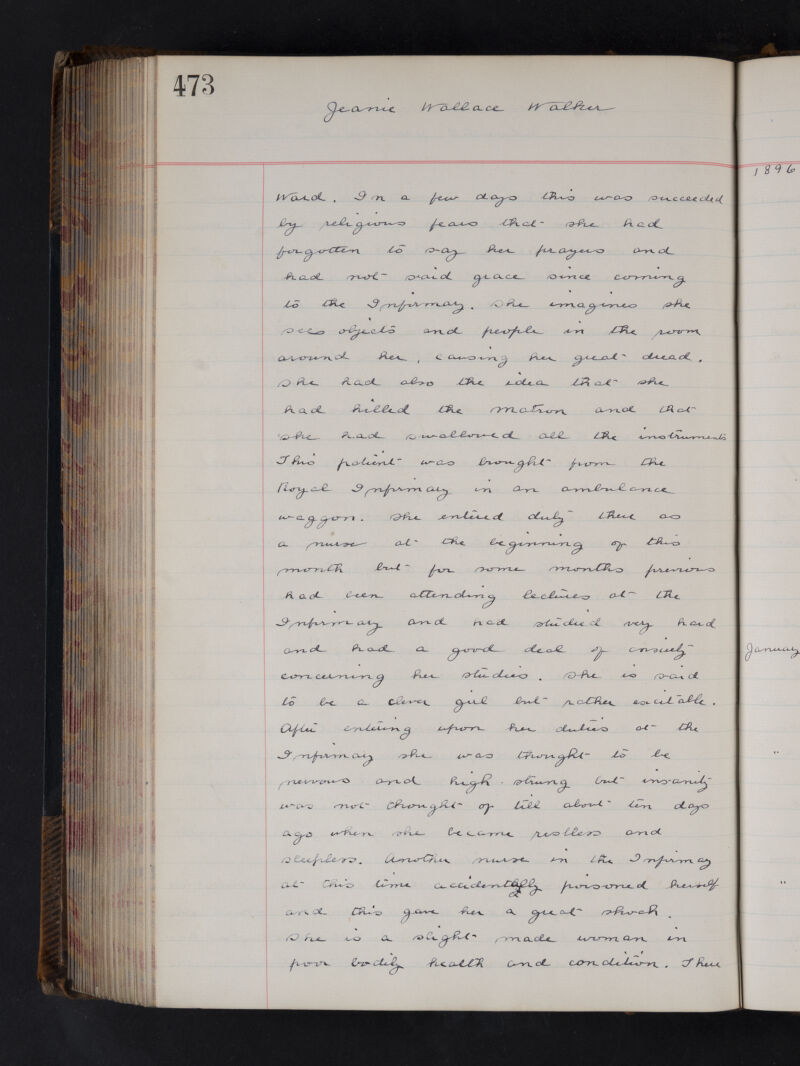 473
Jeanie Wallace Walker
1896
Ward. In a few days this was succeeded
by religious fears that she had
forgotten to say her prayers and
had not said grace since coming
to the Infirmary. She imagines she
sees objects and people in the room
around her, causing her great dread.
She had also the idea that she
had killed the Matron and that
she had swallowed all the instruments
This patient was brought from the
Royal Infirmary in an ambulance
waggon. She entered duty there as
a nurse at the beginning of this
month but for some months previous
had been attending lectures at the
Infirmary and had studied very hard
and had a good deal of anxiety
concerning her studies. She is said
to be a clever girl but rather excitable.
After entering upon her duties at the
Infirmary she was thought to be
nervous and high-strung but insanity
was not thought of till about ten days
ago when she became restless and
sleepless. Another nurse in the Infirmary
at this time accidentally poisoned herself
and this gave her a great shock.
She is a slight made woman in
poor bodily health and condition. There
January
"
"